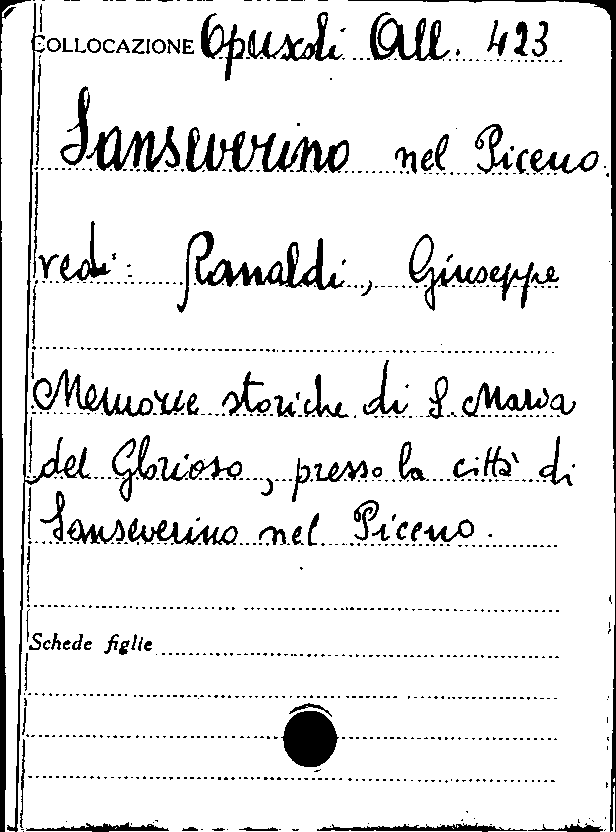 COLLOCAZIONE Opuscoli All. 423
Sanseverino nel Piceno
vedi: Ranaldi, Giuseppe
Memorie storiche di S. Maria
del Glorioso, presso la città di
Sanseverino nel Piceno.
Schede figlie